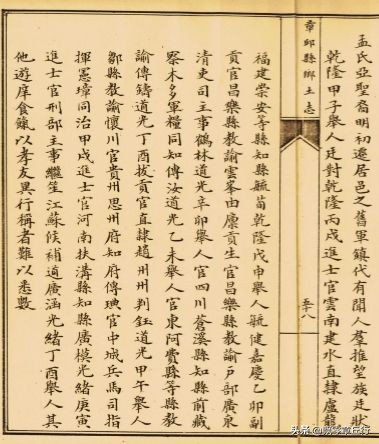 孟氏亞聖裔明初遷居邑之舊軍鎮代有聞人羣推望族廷狀
乾隆甲子舉人廷對乾隆丙戌進士官雲南建水直隸盧龍
章邱縣鄉土志
福建崇安等縣知縣毓苗乾隆戊申舉人毓健嘉慶乙卯副
貢官昌樂縣教諭雲峯由廩貢生官昌樂縣教諭戶部廣東
清吏司主事鶴林道光辛卯舉人官四川蒼溪縣知縣前藏
察木多軍糧同知傳汝道光乙未舉人官東阿費縣等縣教
諭傳鑄道光丁酉拔貢官直隸趙州州判鈺道光甲午舉人
鄒縣教諭懷川官貴州思州府知府傳琠官中城兵馬司指
揮憲璋同治甲戌進士官河南扶溝縣知縣廣模光緒庚寅
進士官刑部主事繼笙江蘇候補道廣涵光緒丁酉舉人其
他遊庠食餼以孝友異行稱者難以悉數
头条